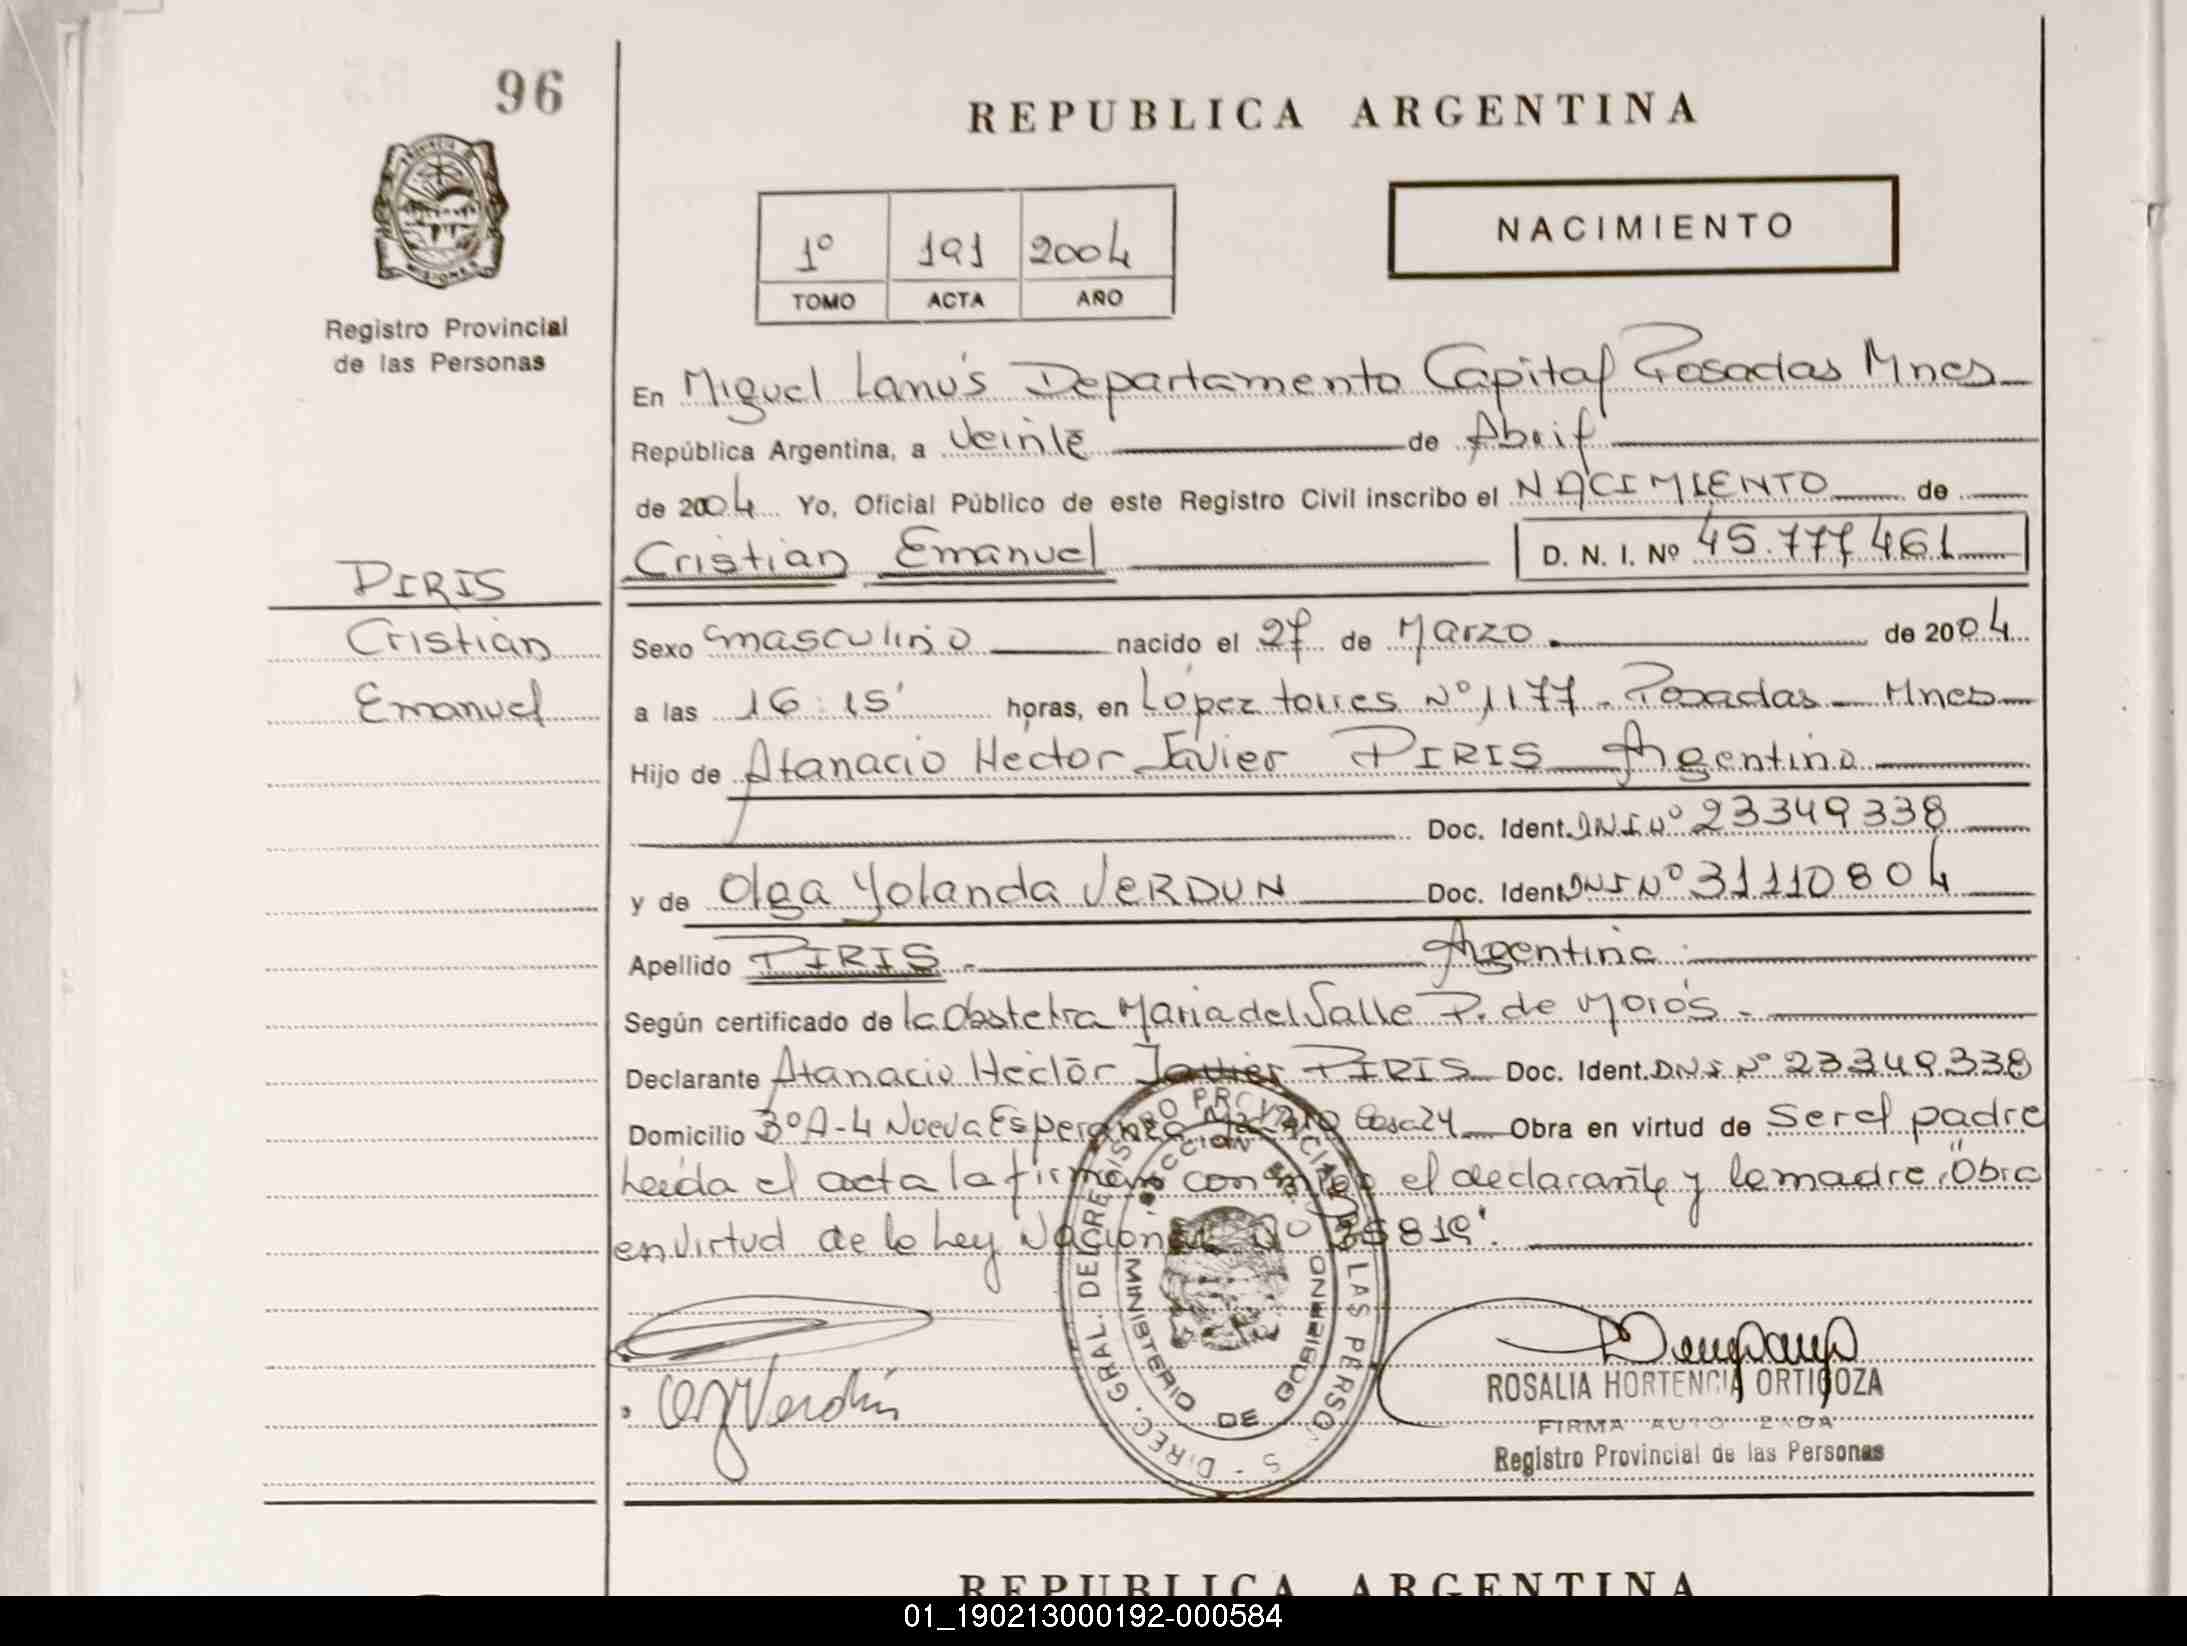 96
REPUBLICA ARGENTINA
PROVINCIA DE
MISIONES
Registro Provincial
de las Personas
NACIMIENTO
1º 191 2004
TOMO ACTA AÑO
En Miguel Lanús Departamento Capital Posadas Mnes
República Argentina, a veinte de Abril
de 2004 Yo, Oficial Público de este Registro Civil inscribo el NACIMIENTO de
Cristian Emanuel D. N. I. Nº 45.777461
PIRIS
Cristian
Emanuel
Sexo masculino nacido el 27 de Marzo. de 2004
a las 16:15' horas, en López torres Nº 1177 - Posadas - Mnes
Hijo de Atanacio Héctor Javier PIRIS Argentino
Doc. Ident. DNI Nº 23349338
y de Olga Yolanda VERDUN Doc. Ident. DNI Nº 31110804
Apellido PIRIS.- Argentina.
Según certificado de la Obstetra Maria del Valle P. de Morós.-
Declarante Atanacio Héctor Javier PIRIS Doc. Ident. DNI Nº 23349338
Domicilio 3º A-4 Nueva Esperanza Casa 24 Obra en virtud de Ser el padre
Leída el acta la firman conmigo el declarante y la madre "Obra
en virtud de la Ley Nacional Nº 25819".
DIREC. GRAL. DEL REGISTRO PROVINCIAL DE LAS PERSONAS
MINISTERIO DE GOBIERNO
Verdún
ROSALIA HORTENCIA ORTIGOZA
FIRMA AUTORIZADA
Registro Provincial de las Personas
REPUBLICA ARGENTINA
01_190213000192-000584